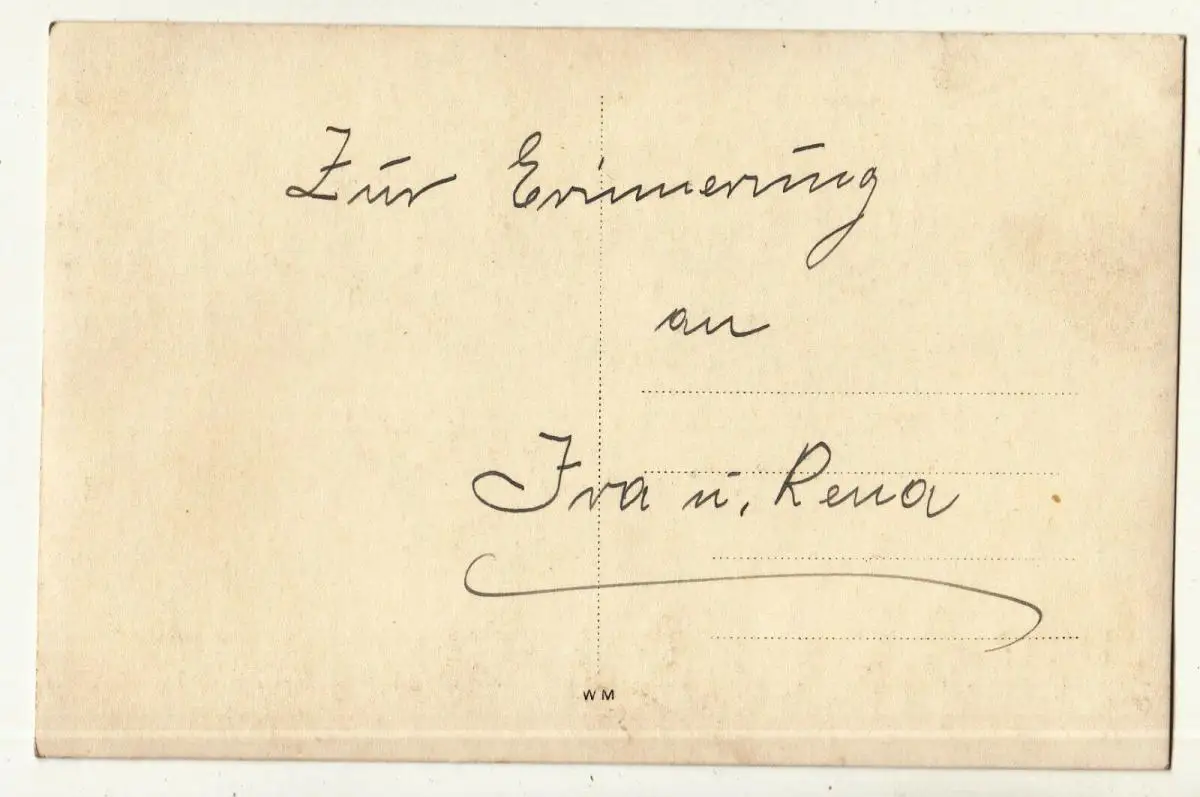 Zur Erinnerung
an
Ira u. Rena
WM